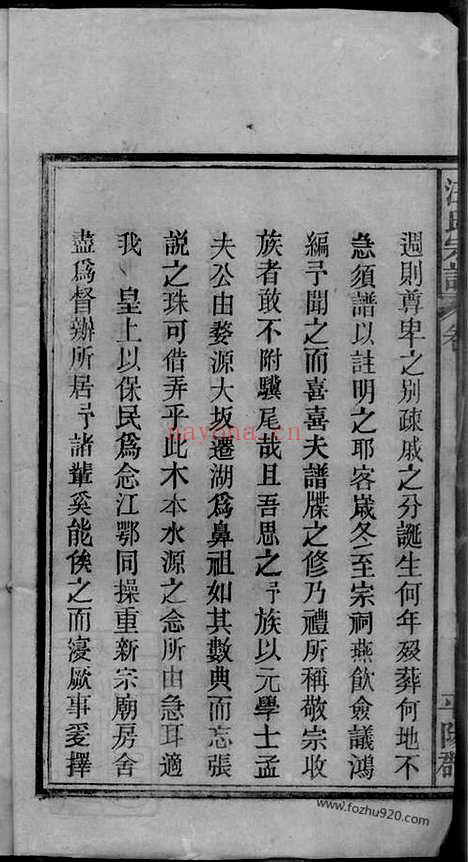 汪氏宗譜 卷
平陽郡
週則尊卑之别疎戚之分誕生何年殁葬何地不
急須譜以註明之耶客嵗冬至宗祠燕飲僉議鴻
編予聞之而喜喜夫譜牒之修乃禮所稱敬宗收
族者敢不附驥尾哉且吾思之予族以元學士孟
夫公由婺源大坂遷湖爲鼻祖如其數典而忘張
說之珠可借弄乎此木本水源之念所由急耳適
我 皇上以保民爲念江鄂同操重新宗廟房舍
盡爲督辦所居予諸輩奚能俟之而寖厥事爰擇
nayona.cn
www.fozhu920.com